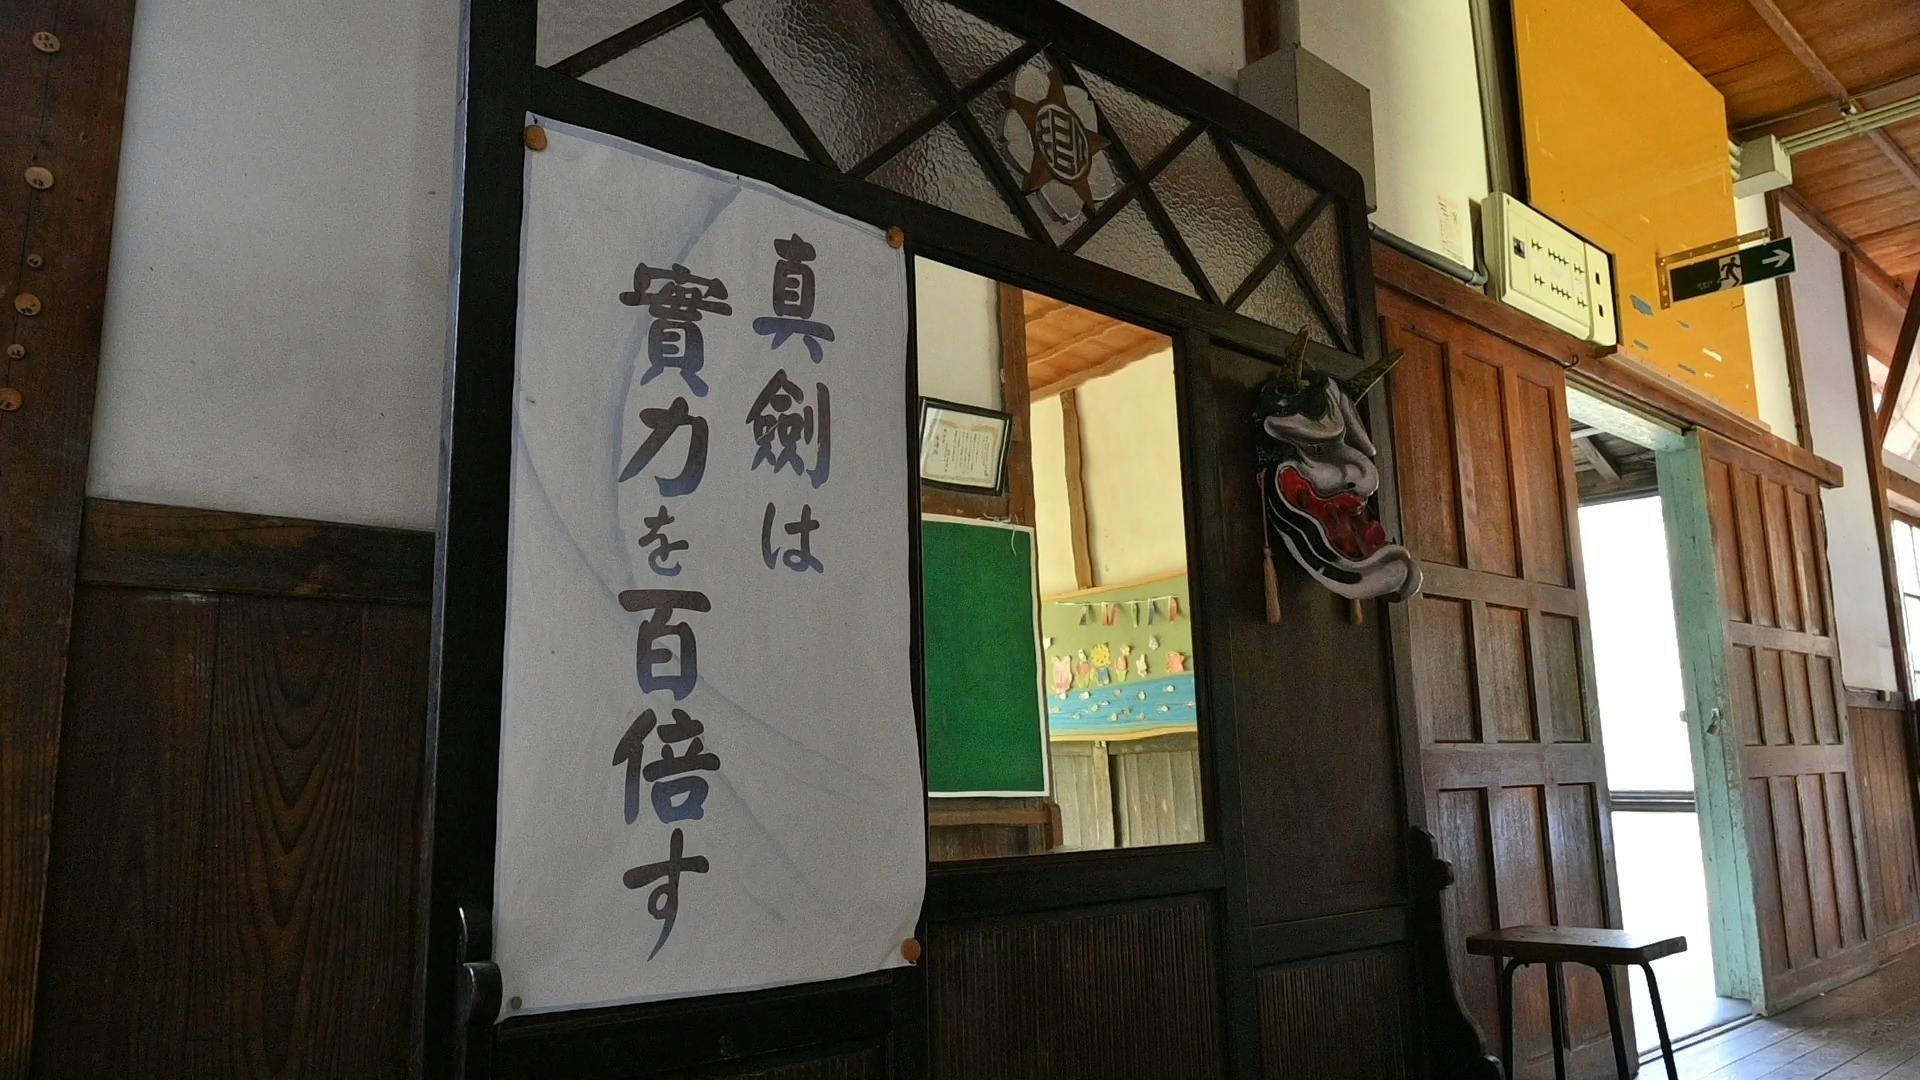 真劍は
實力を百倍す